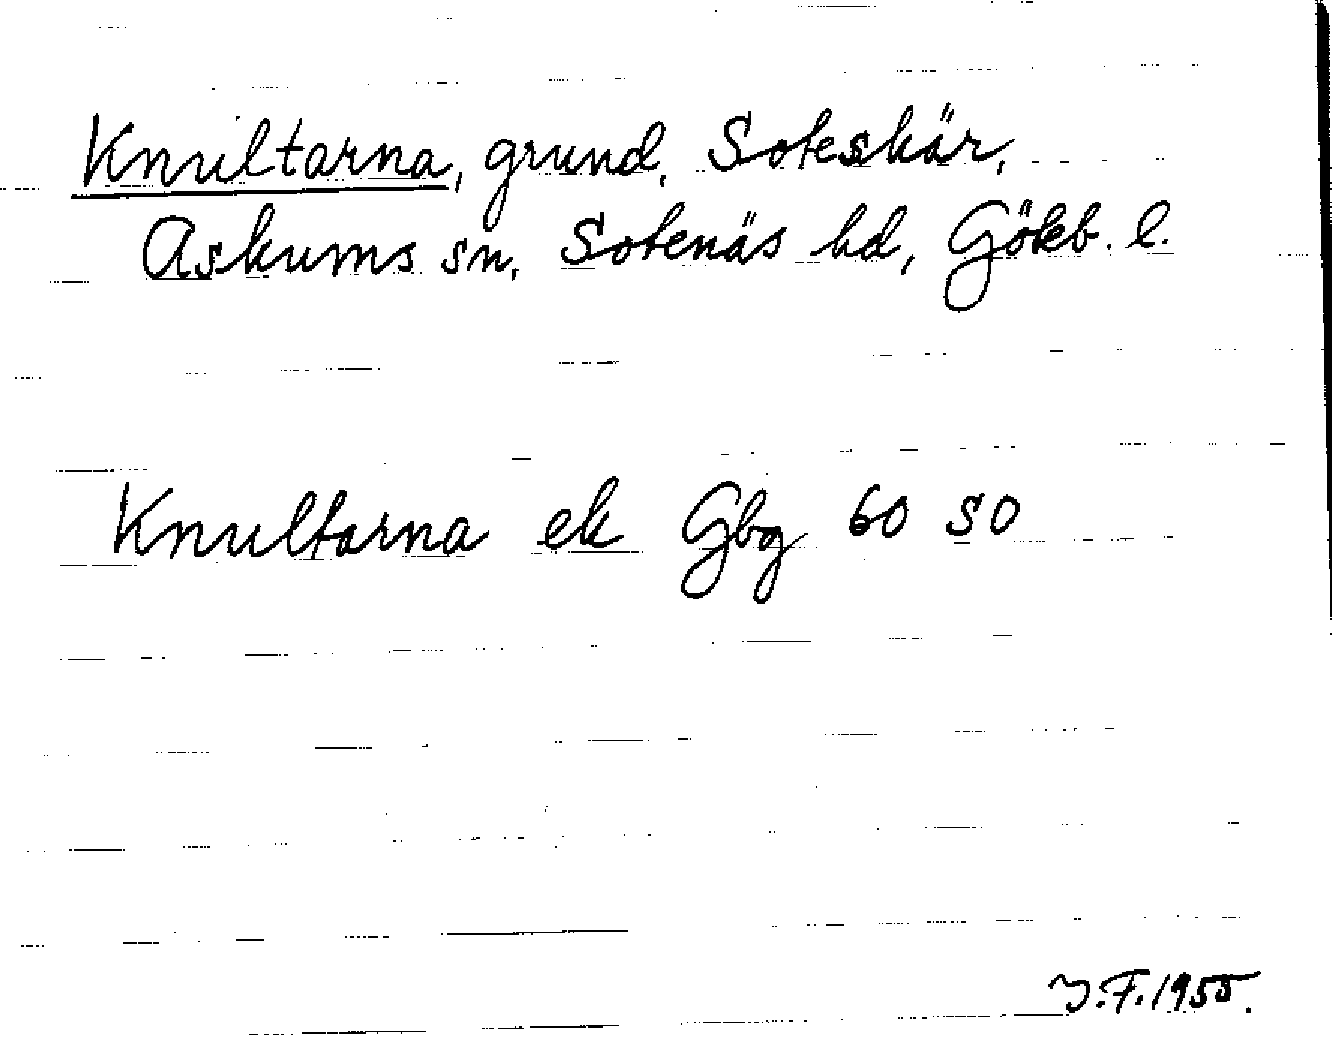 Knultarna, grund, Soteskär,
Askums sn, Sotenäs hd, Göteb. l.
Knultarna ek Gbg 60 SO
J.F. 1955.